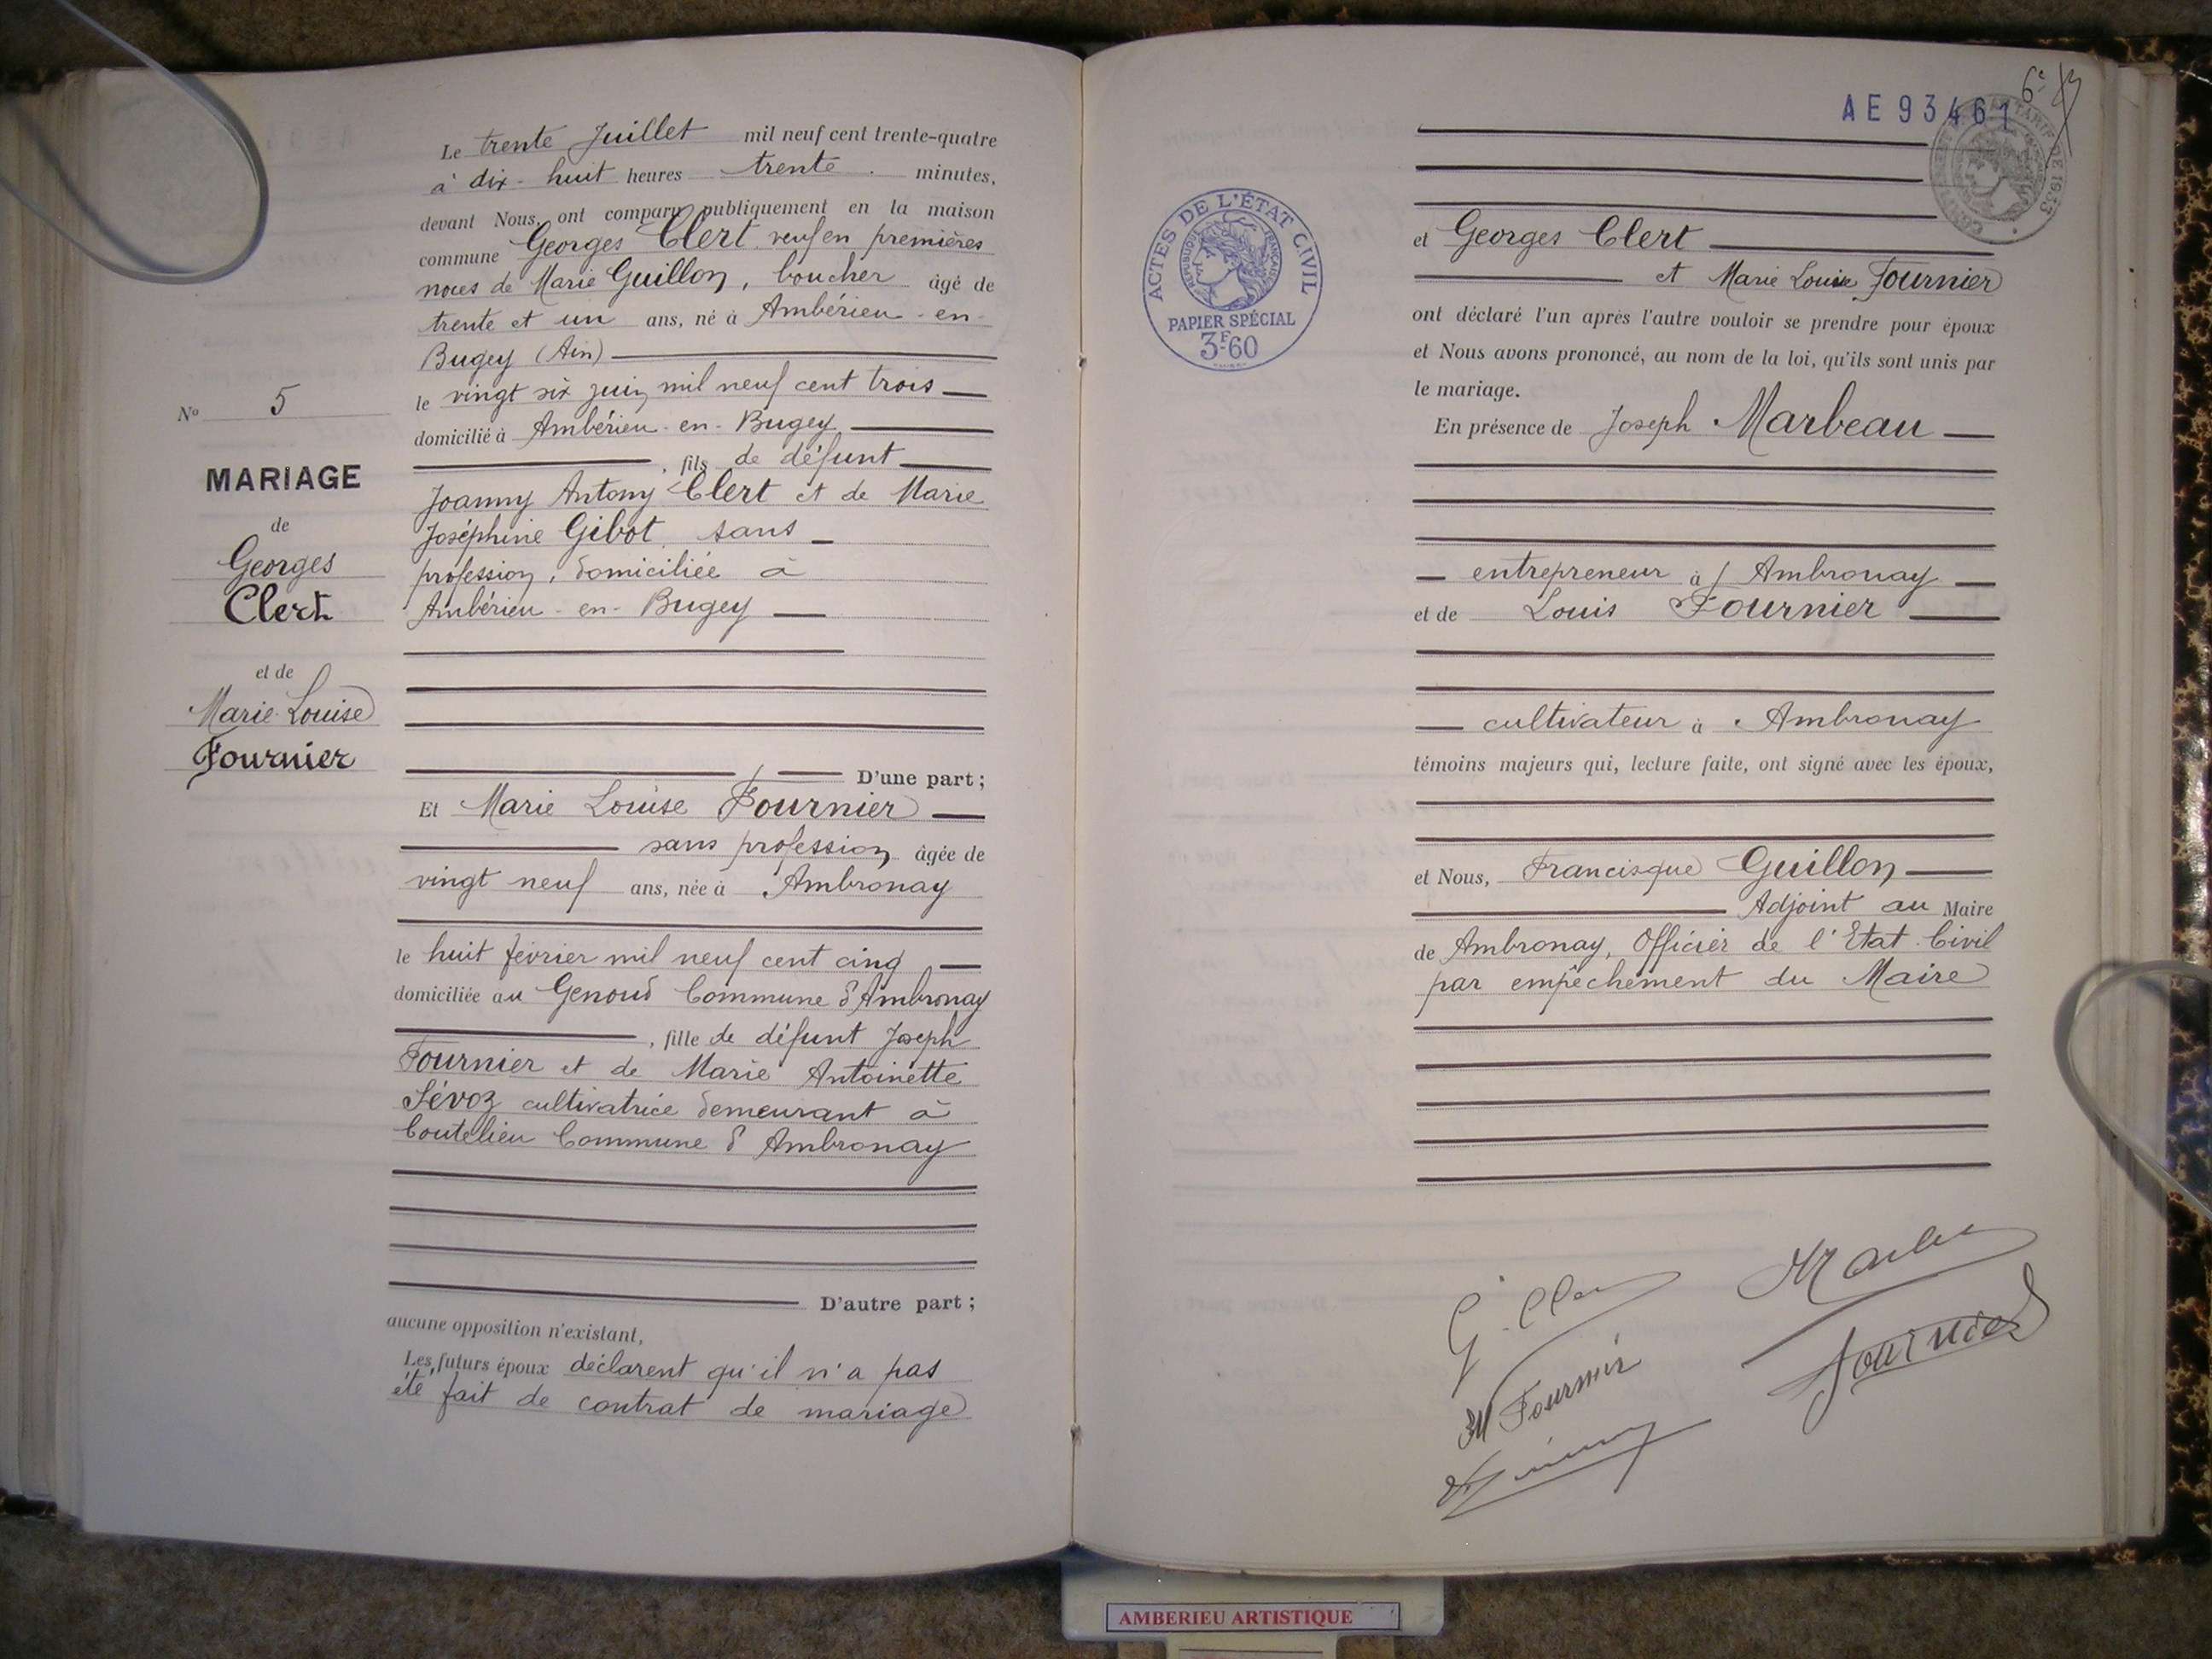 Le trente Juillet mil neuf cent trente-quatre
à dix-huit heures trente minutes,
devant Nous, ont comparu publiquement en la maison
commune Georges Clert veuf en premières
noces de Marie Guillon, boucher âgé de
trente et un ans, né à Ambérieu-en-
Bugey (Ain)
le vingt six juin mil neuf cent trois
domicilié à Ambérieu-en-Bugey
, fils de défunt
Joanny Antony Clert et de Marie
Joséphine Gibot sans
profession, domiciliée à
Ambérieu-en-Bugey
D'une part;
Et Marie Louise Fournier
sans profession âgée de
vingt neuf ans, née à Ambronay
le huit février mil neuf cent cinq
domiciliée au Genoud Commune d'Ambronay
, fille de défunt Joseph
Fournier et de Marie Antoinette
Sévoz cultivatrice demeurant à
Coutelieu Commune d'Ambronay
D'autre part;
aucune opposition n'existant,
Les futurs époux déclarent qu'il n'a pas
été fait de contrat de mariage
No 5
MARIAGE
de
Georges
Clert
et de
Marie-Louise
Fournier
AE 93461
6e
ACTES DE L'ÉTAT CIVIL
RÉPUBLIQUE FRANÇAISE
PAPIER SPÉCIAL
3F60
TARIF DE 1933
et Georges Clert
et Marie Louise Fournier
ont déclaré l'un après l'autre vouloir se prendre pour époux
et Nous avons prononcé, au nom de la loi, qu'ils sont unis par
le mariage.
En présence de Joseph Marbeau
entrepreneur à Ambronay
et de Louis Fournier
cultivateur à Ambronay
témoins majeurs qui, lecture faite, ont signé avec les époux,
et Nous, Francisque Guillon
Adjoint au Maire
de Ambronay, Officier de l'Etat Civil
par empêchement du Maire
G. Cler
M Fournier
Fournier
AMBERIEU ARTISTIQUE